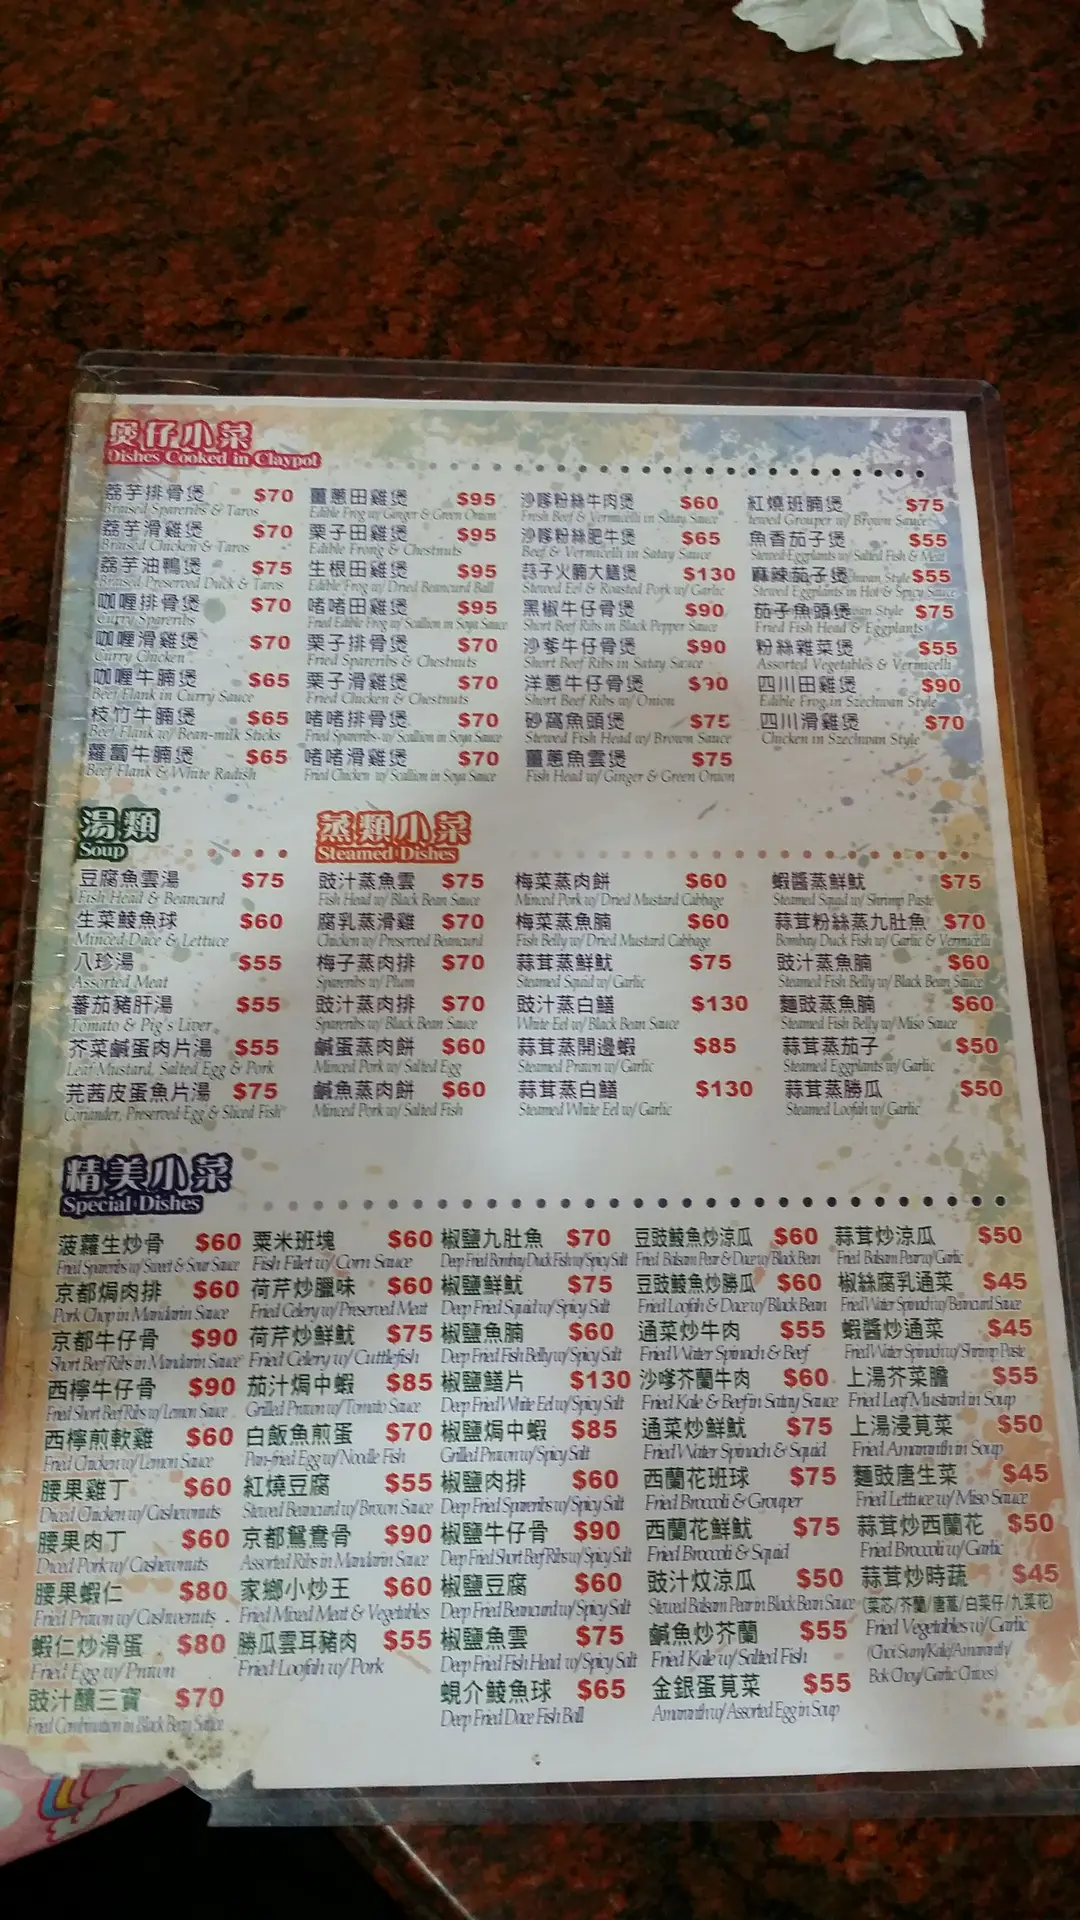 煲仔小菜
Dishes Cooked in Claypot
荔芋排骨煲 $70
Braised Spareribs & Taros
荔芋滑雞煲 $70
Braised Chicken & Taros
荔芋油鴨煲 $75
Braised Preserved Duck & Taros
咖喱排骨煲 $70
Curry Spareribs
咖喱滑雞煲 $70
Curry Chicken
咖喱牛腩煲 $65
Beef Flank in Curry Sauce
枝竹牛腩煲 $65
Beef Flank w/ Bean-milk Sticks
蘿蔔牛腩煲 $65
Beef Flank & White Radish
薑蔥田雞煲 $95
Edible Frog w/ Ginger & Green Onion
栗子田雞煲 $95
Edible Frong & Chestnuts
生根田雞煲 $95
Edible Frog w/ Dried Beancurd Ball
啫啫田雞煲 $95
Fried Edible Frog w/ Scallion in Soya Sauce
栗子排骨煲 $70
Fried Spareribs & Chestnuts
栗子滑雞煲 $70
Fried Chicken & Chestnuts
啫啫排骨煲 $70
Fried Spareribs w/ Scallion in Soya Sauce
啫啫滑雞煲 $70
Fried Chicken w/ Scallion in Soya Sauce
沙嗲粉絲牛肉煲 $60
Fresh Beef & Vermicelli in Satay Sauce
沙嗲粉絲肥牛煲 $65
Beef & Vermicelli in Satay Sauce
蒜子火腩大鱔煲 $130
Stewed Eel & Roasted Pork w/ Garlic
黑椒牛仔骨煲 $90
Short Beef Ribs in Black Pepper Sauce
沙爹牛仔骨煲 $90
Short Beef Ribs in Satay Sauce
洋蔥牛仔骨煲 $90
Short Beef Ribs w/ Onion
砂窩魚頭煲 $75
Stewed Fish Head w/ Brown Sauce
薑蔥魚雲煲 $75
Fish Head w/ Ginger & Green Onion
紅燒班腩煲 $75
tewed Grouper w/ Brown Sauce
魚香茄子煲 $55
Stewed Eggplants w/ Salted Fish & Meat
麻辣茄子煲 $55
Stewed Eggplants in Hot & Spicy Sauce
茄子魚頭煲 $75
Fried Fish Head & Eggplants
粉絲雜菜煲 $55
Assorted Vegetables & Vermicelli
四川田雞煲 $90
Edible Frog in Szechwan Style
四川滑雞煲 $70
Chicken in Szechwan Style
湯類
Soup
豆腐魚雲湯 $75
Fish Head & Beancurd
生菜鯪魚球 $60
Minced Dace & Lettuce
八珍湯 $55
Assorted Meat
蕃茄豬肝湯 $55
Tomato & Pig's Liver
芥菜鹹蛋肉片湯 $55
Leaf Mustard, Salted Egg & Pork
芫茜皮蛋魚片湯 $75
Coriander, Preserved Egg & Sliced Fish
蒸類小菜
Steamed Dishes
豉汁蒸魚雲 $75
Fish Head w/ Black Bean Sauce
腐乳蒸滑雞 $70
Chicken w/ Preserved Beancurd
梅子蒸肉排 $70
Spareribs w/ Plum
豉汁蒸肉排 $70
Spareribs w/ Black Bean Sauce
鹹蛋蒸肉餅 $60
Minced Pork w/ Salted Egg
鹹魚蒸肉餅 $60
Minced Pork w/ Salted Fish
梅菜蒸肉餅 $60
Minced Pork w/ Dried Mustard Cabbage
梅菜蒸魚腩 $60
Fish Belly w/ Dried Mustard Cabbage
蒜茸蒸鮮魷 $75
Steamed Squid w/ Garlic
豉汁蒸白鱔 $130
White Eel w/ Black Bean Sauce
蒜茸蒸開邊蝦 $85
Steamed Prawn w/ Garlic
蒜茸蒸白鱔 $130
Steamed White Eel w/ Garlic
蝦醬蒸鮮魷 $75
Steamed Squad w/ Shrimp Paste
蒜茸粉絲蒸九肚魚 $70
Bombay Duck Fish w/ Garlic & Vermicelli
豉汁蒸魚腩 $60
Steamed Fish Belly w/ Black Bean Sauce
麵豉蒸魚腩 $60
Steamed Fish Belly w/ Miso Sauce
蒜茸蒸茄子 $50
Steamed Eggplants w/ Garlic
蒜茸蒸勝瓜 $50
Steamed Loofah w/ Garlic
精美小菜
Special Dishes
菠蘿生炒骨 $60
Fried Spareribs w/ Sweet & Sour Sauce
京都焗肉排 $60
Pork Chop in Mandarin Sauce
京都牛仔骨 $90
Short Beef Ribs in Mandarin Sauce
西檸牛仔骨 $90
Fried Short Beef Ribs w/ Lemon Sauce
西檸煎軟雞 $60
Fried Chicken w/ Lemon Sauce
腰果雞丁 $60
Diced Chicken w/ Cashewnuts
腰果肉丁 $60
Diced Pork w/ Cashewnuts
腰果蝦仁 $80
Fried Prawn w/ Cashwoenuts
蝦仁炒滑蛋 $80
Fried Egg w/ Prawn
豉汁釀三寶 $70
Fried Combination in Black Bean Sauce
粟米班塊 $60
Fish Filet w/ Corn Sauce
荷芹炒臘味 $60
Fried Celery w/ Preserved Meat
荷芹炒鮮魷 $75
Fried Celery w/ Cuttlefish
茄汁焗中蝦 $85
Grilled Prawn w/ Tomato Sauce
白飯魚煎蛋 $70
Pan-fried Egg w/ Noodle Fish
紅燒豆腐 $55
Stewed Beancurd w/ Brown Sauce
京都鴛鴦骨 $90
Assorted Ribs in Mandarin Sauce
家鄉小炒王 $60
Fried Mixed Meat & Vegetables
勝瓜雲耳豬肉 $55
Fried Loofah w/ Pork
椒鹽九肚魚 $70
Deep Fried Bombay Duck Fish w/ Spicy Salt
椒鹽鮮魷 $75
Deep Fried Squid w/ Spicy Salt
椒鹽魚腩 $60
Deep Fried Fish Belly w/ Spicy Salt
椒鹽鱔片 $130
Deep Fried White Eel w/ Spicy Salt
椒鹽焗中蝦 $85
Grilled Prawn w/ Spicy Salt
椒鹽肉排 $60
Deep Fried Spareribs w/ Spicy Salt
椒鹽牛仔骨 $90
Deep Fried Short Beef Ribs w/ Spicy Salt
椒鹽豆腐 $60
Deep Fried Beancurd w/ Spicy Salt
椒鹽魚雲 $75
Deep Fried Fish Head w/ Spicy Salt
蜆介鯪魚球 $65
Deep Fried Dace Fish Ball
豆豉鯪魚炒涼瓜 $60
Fried Balsam Pear & Dace w/ Black Bean
豆豉鯪魚炒勝瓜 $60
Fried Loofah & Dace w/ Black Bean
通菜炒牛肉 $55
Fried Water Spinach & Beef
沙嗲芥蘭牛肉 $60
Fried Kale & Beef in Satay Sauce
通菜炒鮮魷 $75
Fried Water Spinach & Squid
西蘭花班球 $75
Fried Broccoli & Grouper
西蘭花鮮魷 $75
Fried Broccoli & Squid
豉汁炆涼瓜 $50
Stewed Balsam Pear in Black Bean Sauce
鹹魚炒芥蘭 $55
Fried Kale w/ Salted Fish
金銀蛋莧菜 $55
Amaranth w/ Assorted Egg in Soup
蒜茸炒涼瓜 $50
Fried Balsam Pear w/ Garlic
椒絲腐乳通菜 $45
Fried Water Spinach w/ Beancurd Sauce
蝦醬炒通菜 $45
Fried Water Spinach w/ Shrimp Paste
上湯芥菜膽 $55
Fried Leaf Mustard in Soup
上湯浸莧菜 $50
Fried Amaranth in Soup
麵豉唐生菜 $45
Fried Lettuce w/ Miso Sauce
蒜茸炒西蘭花 $50
Fried Broccoli w/ Garlic
蒜茸炒時蔬 $45
(菜芯/芥蘭/唐萵/白菜仔/九菜花)
Fried Vegetables w/ Garlic
(Choi Sum/Kale/Amaranth/
Bok Choy/Garlic Chives)